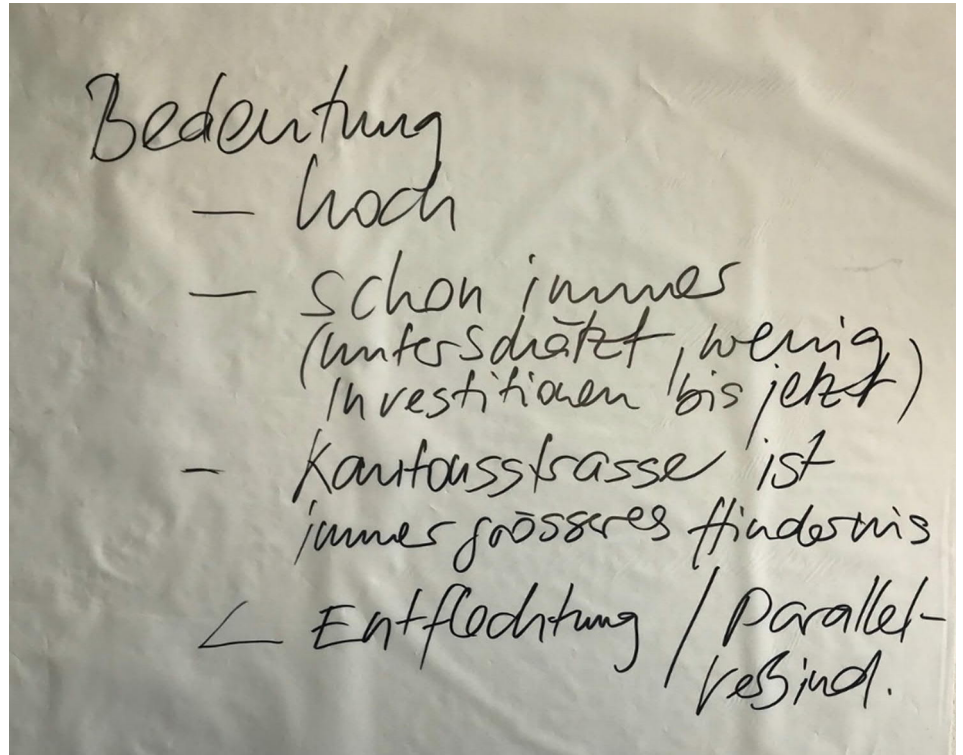 Bedeutung
— hoch
— schon immer
(unterschätzt, wenig
Investitionen bis jetzt)
- Kantonsstrasse ist
immer grösseres Hindernis
∠ Entflechtung / Parallel-
verbind.